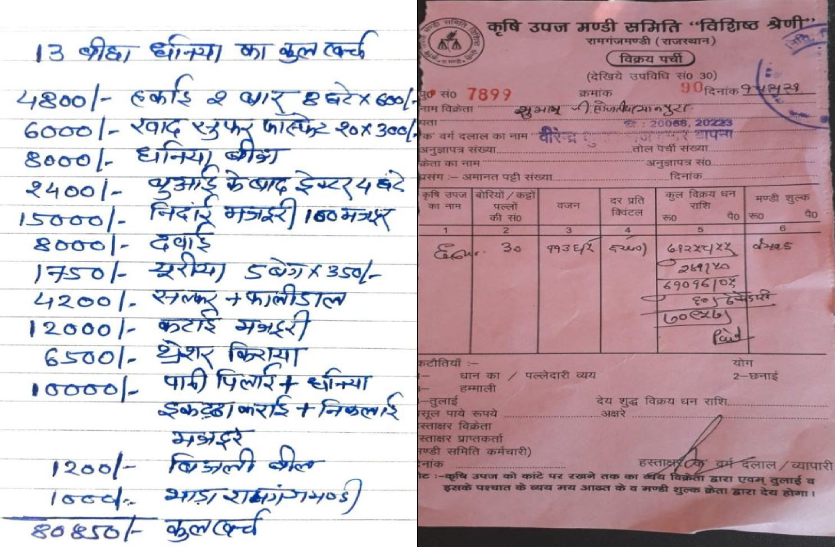 13 बीघा धनिया का कुल खर्च
4800/- हकाई 2 बार 8 घंटे × 600/-
6000/- खाद सुफर फास्फेट 20 × 300/-
8000/- धनिया बीज
2400/- बुआई के बाद ट्रेक्टर 4 घंटे
15000/- निदाई मजदूरी 100 मजदूर
8000/- दवाई
1750/- यूरीया 5 बेग × 350/-
4200/- सल्फर + कालीडाल
12000/- कटाई मजदूरी
6500/- थ्रेशर किराया
10000/- पानी पिलाई + धनिया
इकट्ठा कराई + निकलाई
मजदूर
1200/- बिजली बील
1000/- भाड़ा रामगंगमण्डी
80850/- कुल खर्च
कृषि उपज मण्डी समिति "विशिष्ठ श्रेणी"
रामगंजमण्डी (राजस्थान)
विक्रय पर्ची
(देखिये उपविधि सं0 30)
सं0 7899 क्रमांक 90 दिनांक
नाम विक्रेता
पता : 20088, 20223
वर्ग दलाल का नाम वीरेन्द्र
अनुज्ञापत्र संख्या तोल पर्ची संख्या
क्रेता का नाम अनुज्ञापत्र सं0
प्रसंग :- अमानत पट्टी संख्या दिनांक
कृषि उपज का नाम बोरियों / कट्टो पल्लों की सं0 वजन दर प्रति क्विंटल कुल विक्रय धन राशि रू0 पै0 मण्डी शुल्क रू0 पै0
1 2 3 4 5 6
30
Paid
कटौतियाँ :- योग
धान का / पल्लेदारी व्यय 2-छनाई
हम्माली
-तुलाई देय शुद्ध विक्रय धन राशि
वसूल पाये रूपये अक्षरे
हस्ताक्षर विक्रेता
हस्ताक्षर प्राप्तकर्ता
मण्डी समिति कर्मचारी)
दिनांक हस्ताक्षर क वर्ग दलाल / व्यापारी
नोट :-कृषि उपज को कांटे पर रखने तक का व्यय विक्रेता द्वारा एवम् तुलाई व
इसके पश्चात के व्यय मय आढ़त के व मण्डी शुल्क क्रेता द्वारा देय होगा।